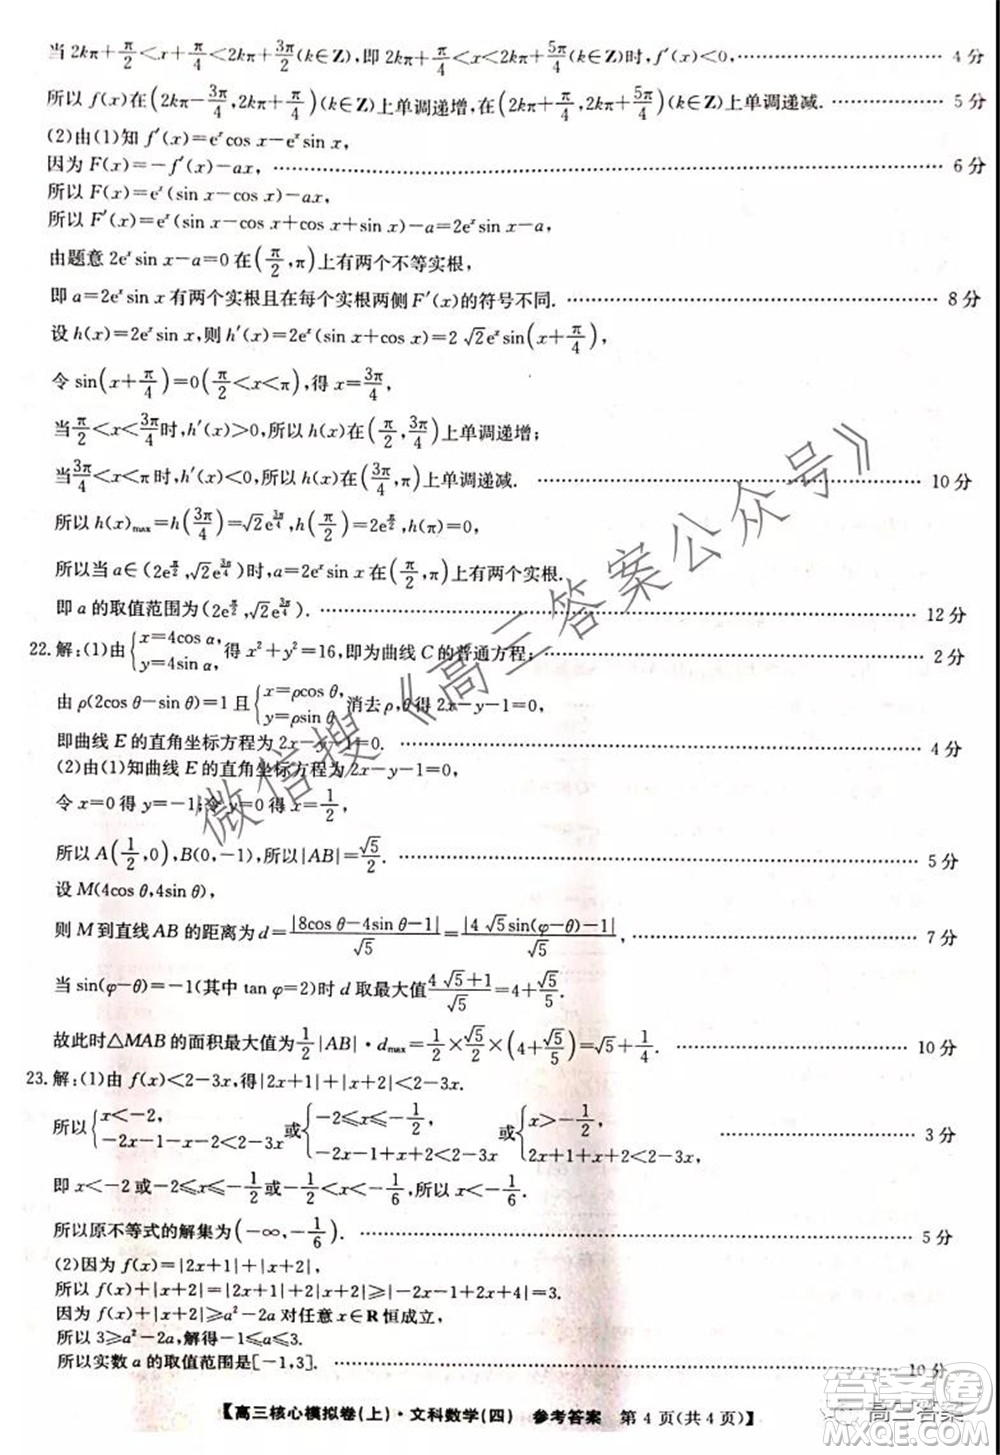 当 2kπ+π/2<x+π/4<2kπ+3π/2(k∈Z),即 2kπ+π/4<x<2kπ+5π/4(k∈Z)时, f′(x)<0, 4 分
所以 f(x)在(2kπ-3π/4,2kπ+π/4)(k∈Z)上单调递增,在(2kπ+π/4,2kπ+5π/4)(k∈Z)上单调递减. 5 分
(2)由(1)知 f′(x)=e^x cos x-e^x sin x,
因为 F(x)=-f′(x)-ax, 6 分
所以 F(x)=e^x(sin x-cos x)-ax,
所以 F′(x)=e^x(sin x-cos x+cos x+sin x)-a=2e^x sin x-a,
由题意 2e^x sin x-a=0 在(π/2,π)上有两个不等实根,
即 a=2e^x sin x 有两个实根且在每个实根两侧 F′(x)的符号不同. 8 分
设 h(x)=2e^x sin x,则 h′(x)=2e^x(sin x+cos x)=2√2e^x sin(x+π/4),
令 sin(x+π/4)=0(π/2<x<π),得 x=3π/4,
当π/2<x<3π/4时,h′(x)>0,所以 h(x)在(π/2,3π/4)上单调递增;
当3π/4<x<π时,h′(x)<0,所以 h(x)在(3π/4,π)上单调递减. 10 分
所以 h(x)max=h(3π/4)=√2e^(3π/4),h(π/2)=2e^(π/2),h(π)=0,
所以当 a∈(2e^(π/2),√2e^(3π/4))时,a=2e^x sin x 在(π/2,π)上有两个不等实根.
即 a 的取值范围为(2e^(π/2),√2e^(3π/4)). 12 分
22.解:(1)由{x=4cos α, y=4sin α, 得 x²+y²=16,即为曲线 C 的普通方程; 2 分
由 ρ(2cos θ-sin θ)=1 且{x=ρcos θ, y=ρsin θ, 消去 ρ,θ得 2x-y-1=0,
即曲线 E 的直角坐标方程为 2x-y-1=0. 4 分
(2)由(1)知曲线 E 的直角坐标方程为 2x-y-1=0,
令 x=0 得 y=-1;令 y=0 得 x=1/2,
所以 A(1/2,0),B(0,-1),所以|AB|=√5/2. 5 分
设 M(4cos θ,4sin θ),
则 M 到直线 AB 的距离为 d=|8cos θ-4sin θ-1|/√5=|4√5sin(φ-θ)-1|/√5, 7 分
当 sin(φ-θ)=-1(其中 tan φ=2)时 d 取最大值(4√5+1)/√5=4+√5/5.
故此时△MAB 的面积最大值为1/2|AB|·dmax=1/2×√5/2×(4+√5/5)=√5+1/4. 10 分
23.解:(1)由 f(x)<2-3x,得|2x+1|+|x+2|<2-3x.
所以{x<-2, -2x-1-x-2<2-3x 或{-2≤x≤-1/2, -2x-1+x+2<2-3x 或{x>-1/2, 2x+1+x+2<2-3x, 3 分
即 x<-2 或-2≤x≤-1/2或-1/2<x<-1/6,所以 x<-1/6.
所以原不等式的解集为(-∞,-1/6). 5 分
(2)因为 f(x)=|2x+1|+|x+2|,
所以 f(x)+|x+2|=|2x+1|+|2x+4|≥|-2x-1+2x+4|=3.
因为 f(x)+|x+2|≥a²-2a 对任意 x∈R 恒成立,
所以 3≥a²-2a,解得-1≤a≤3.
所以实数 a 的取值范围是[-1,3]. 10 分
【高三核心模拟卷(上)·文科数学(四) 参考答案 第 4 页(共 4 页)】
微信搜《高三答案公众号》
高三答案